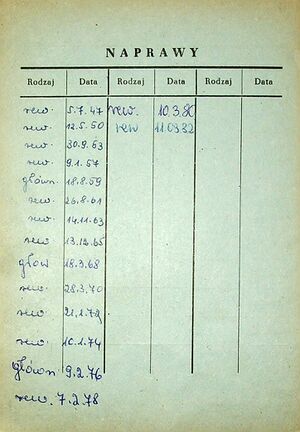 NAPRAWY
Rodzaj Data Rodzaj Data Rodzaj Data
rew. 5.7.47 rew. 10.3.80
rew. 12.5.50 rew 11.03.82
rew. 30.9.53
rew. 9.1.57
główn. 18.8.59
rew. 26.8.61
rew. 14.11.63
rew. 13.12.65
głow 18.3.68
rew. 28.3.70
rew. 21.1.72
rew. 10.1.74
główn 9.2.76
rew. 7.2.78